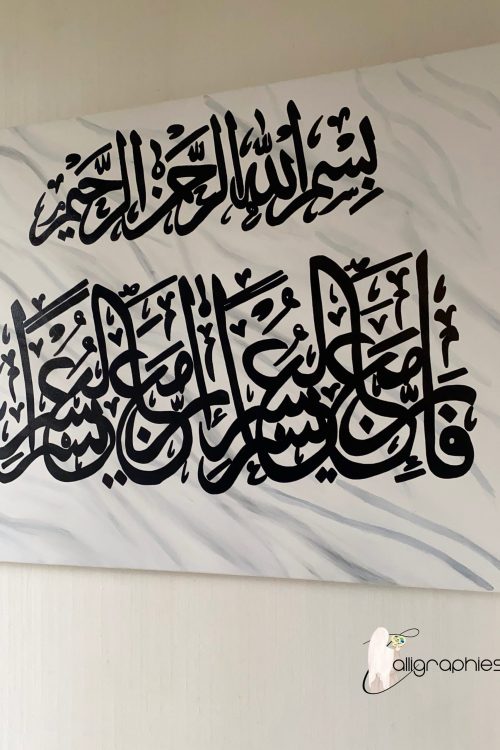 بِسْمِ اللهِ الرَّحْمٰنِ الرَّحِيْمِ
فَإِنَّ مَعَ الْعُسْرِ يُسْرًا إِنَّ مَعَ الْعُسْرِ يُسْرًا
Calligraphies